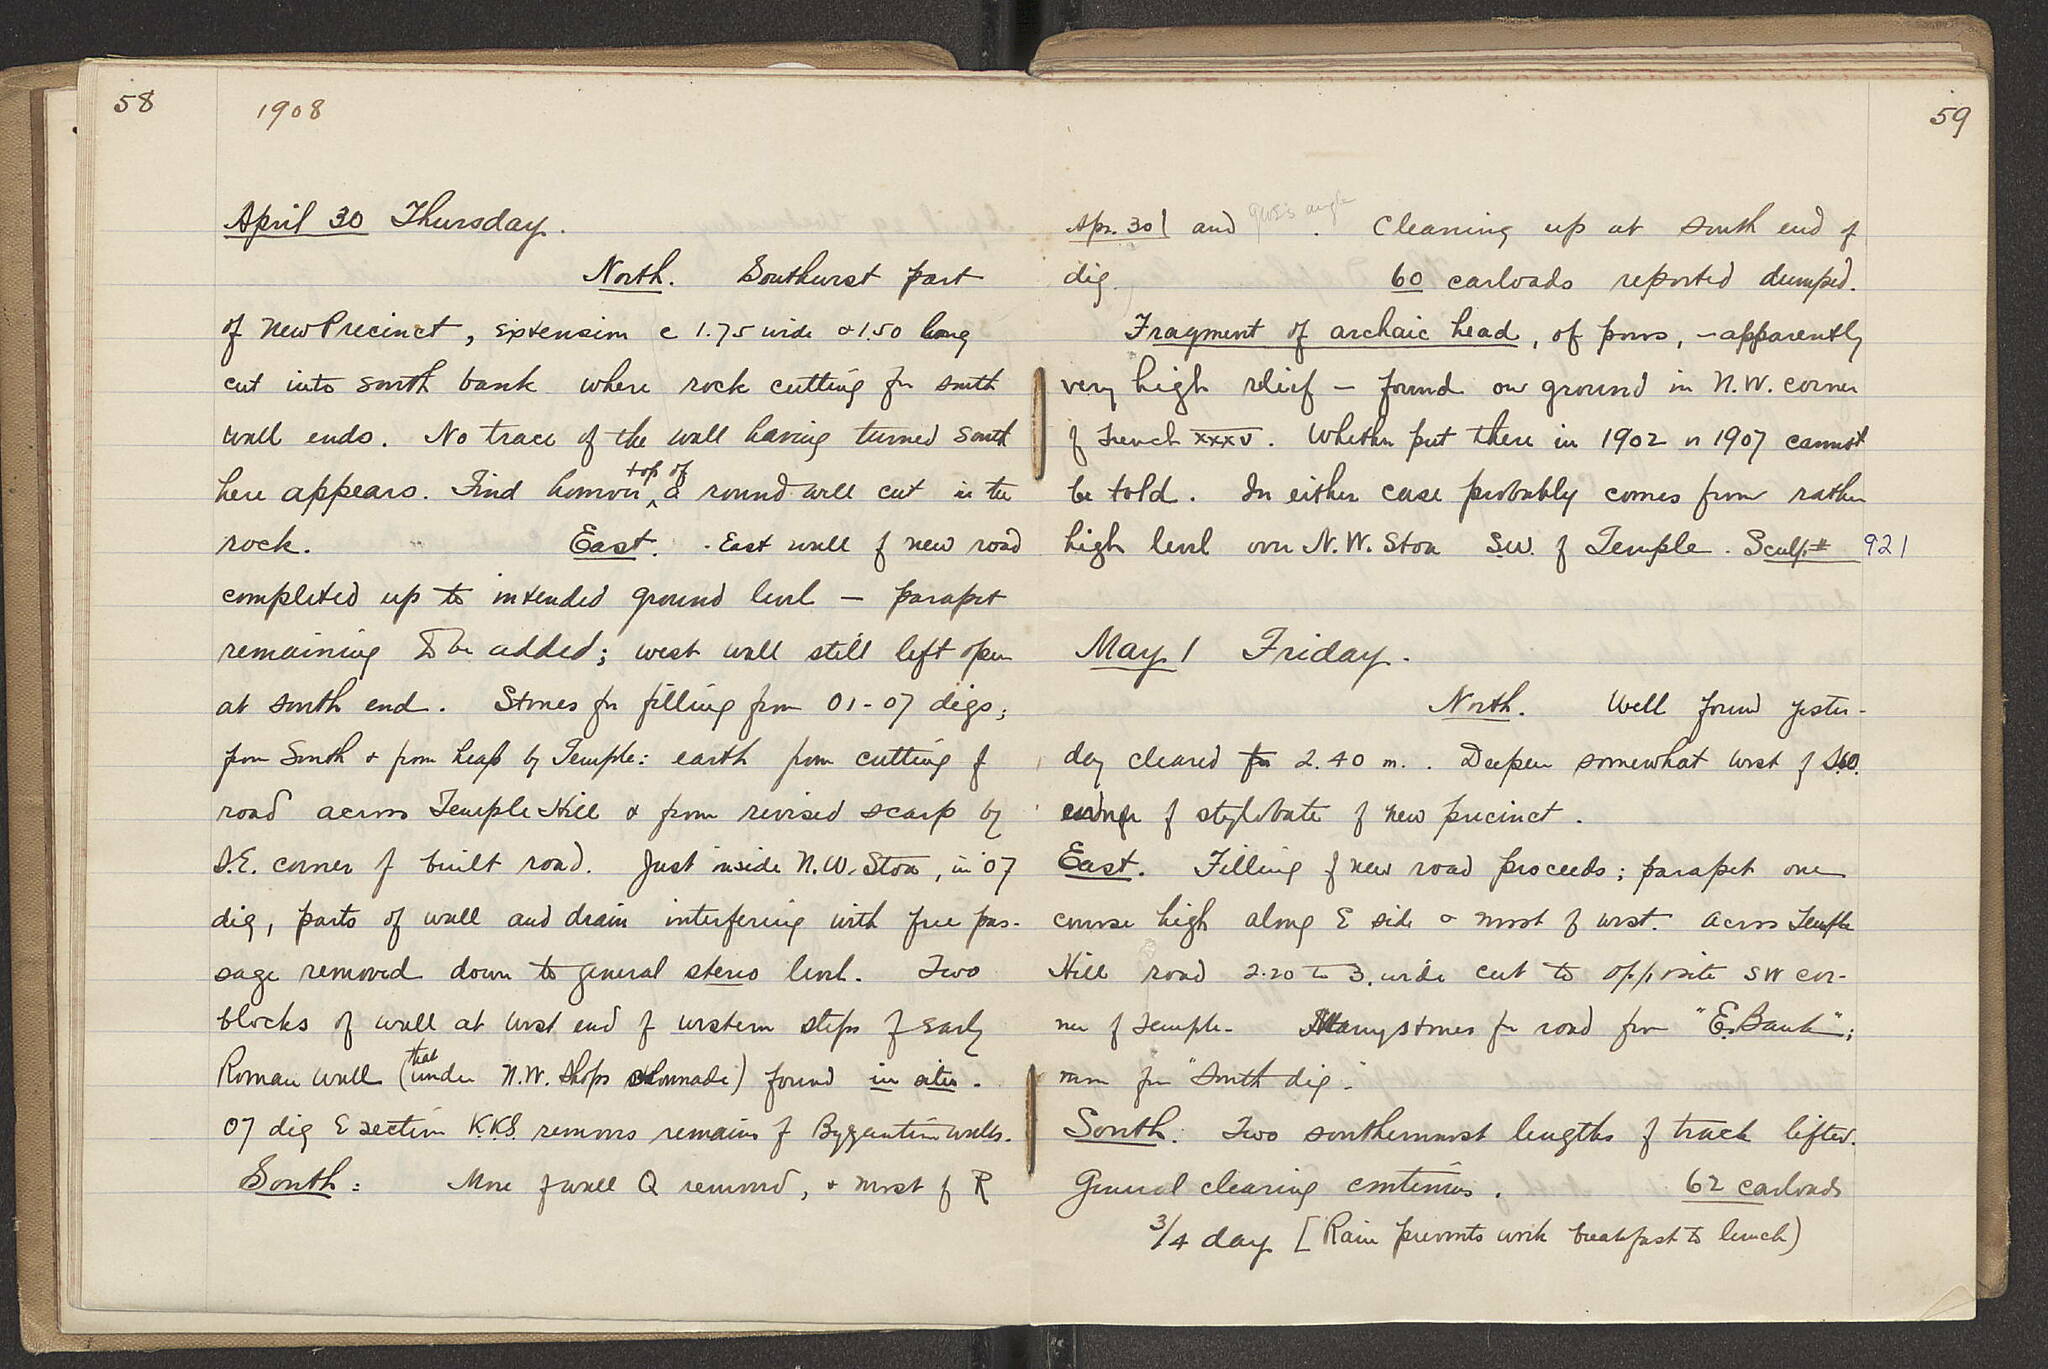 58
1908
April 30 Thursday.
North. Southwest part
of New Precinct, extension c 1.75 wide & 1.50 long
cut into south bank where rock cutting for south
wall ends. No trace of the wall having turned south
here appears. Find however top of a round well cut in the
rock. East. East wall of new road
completed up to intended ground level — parapet
remaining to be added; west wall still left open
at south end. Stones for filling from 01-07 digs;
from South & from heap by Temple: earth from cutting of
road across Temple Hill & from revised scarp by
S.E. corner of built road. Just inside N.W. Stoa, in '07
dig, parts of wall and drain interfering with free pas-
sage removed down to general stereo level. Two
blocks of wall at west end of western steps of Early
Roman wall (that under N.W. Shops colonnade) found in situ.
07 dig E section K.K.S. removes remains of Byzantine walls.
South: More of wall Q removed, & most of R
59
Apr. 30 | and . Cleaning up at south end of
dig. 60 carloads reported dumped.
Fragment of archaic head, of poros, — apparently
very high relief — found on ground in N.W. corner
of Trench XXXV. Whether put there in 1902 or 1907 cannot
be told. In either case probably comes from rather
high level over N.W. Stoa S.W. of Temple. Sculp.# 921
May 1 Friday.
North. Well found yester-
day cleared to 2.40 m.. Deepen somewhat west of
of stylobate of new precinct.
East. Filling of new road proceeds; parapet one
course high along E side & most of west. Across Temple
Hill road 2.20 to 3. wide cut to opposite SW cor-
ner of temple. Many stones for road from "E. Bank";
from "South dig."
South. Two southernmost lengths of track lifted.
General clearing continues. 62 carloads
3/4 day [Rain prevents work breakfast to lunch)